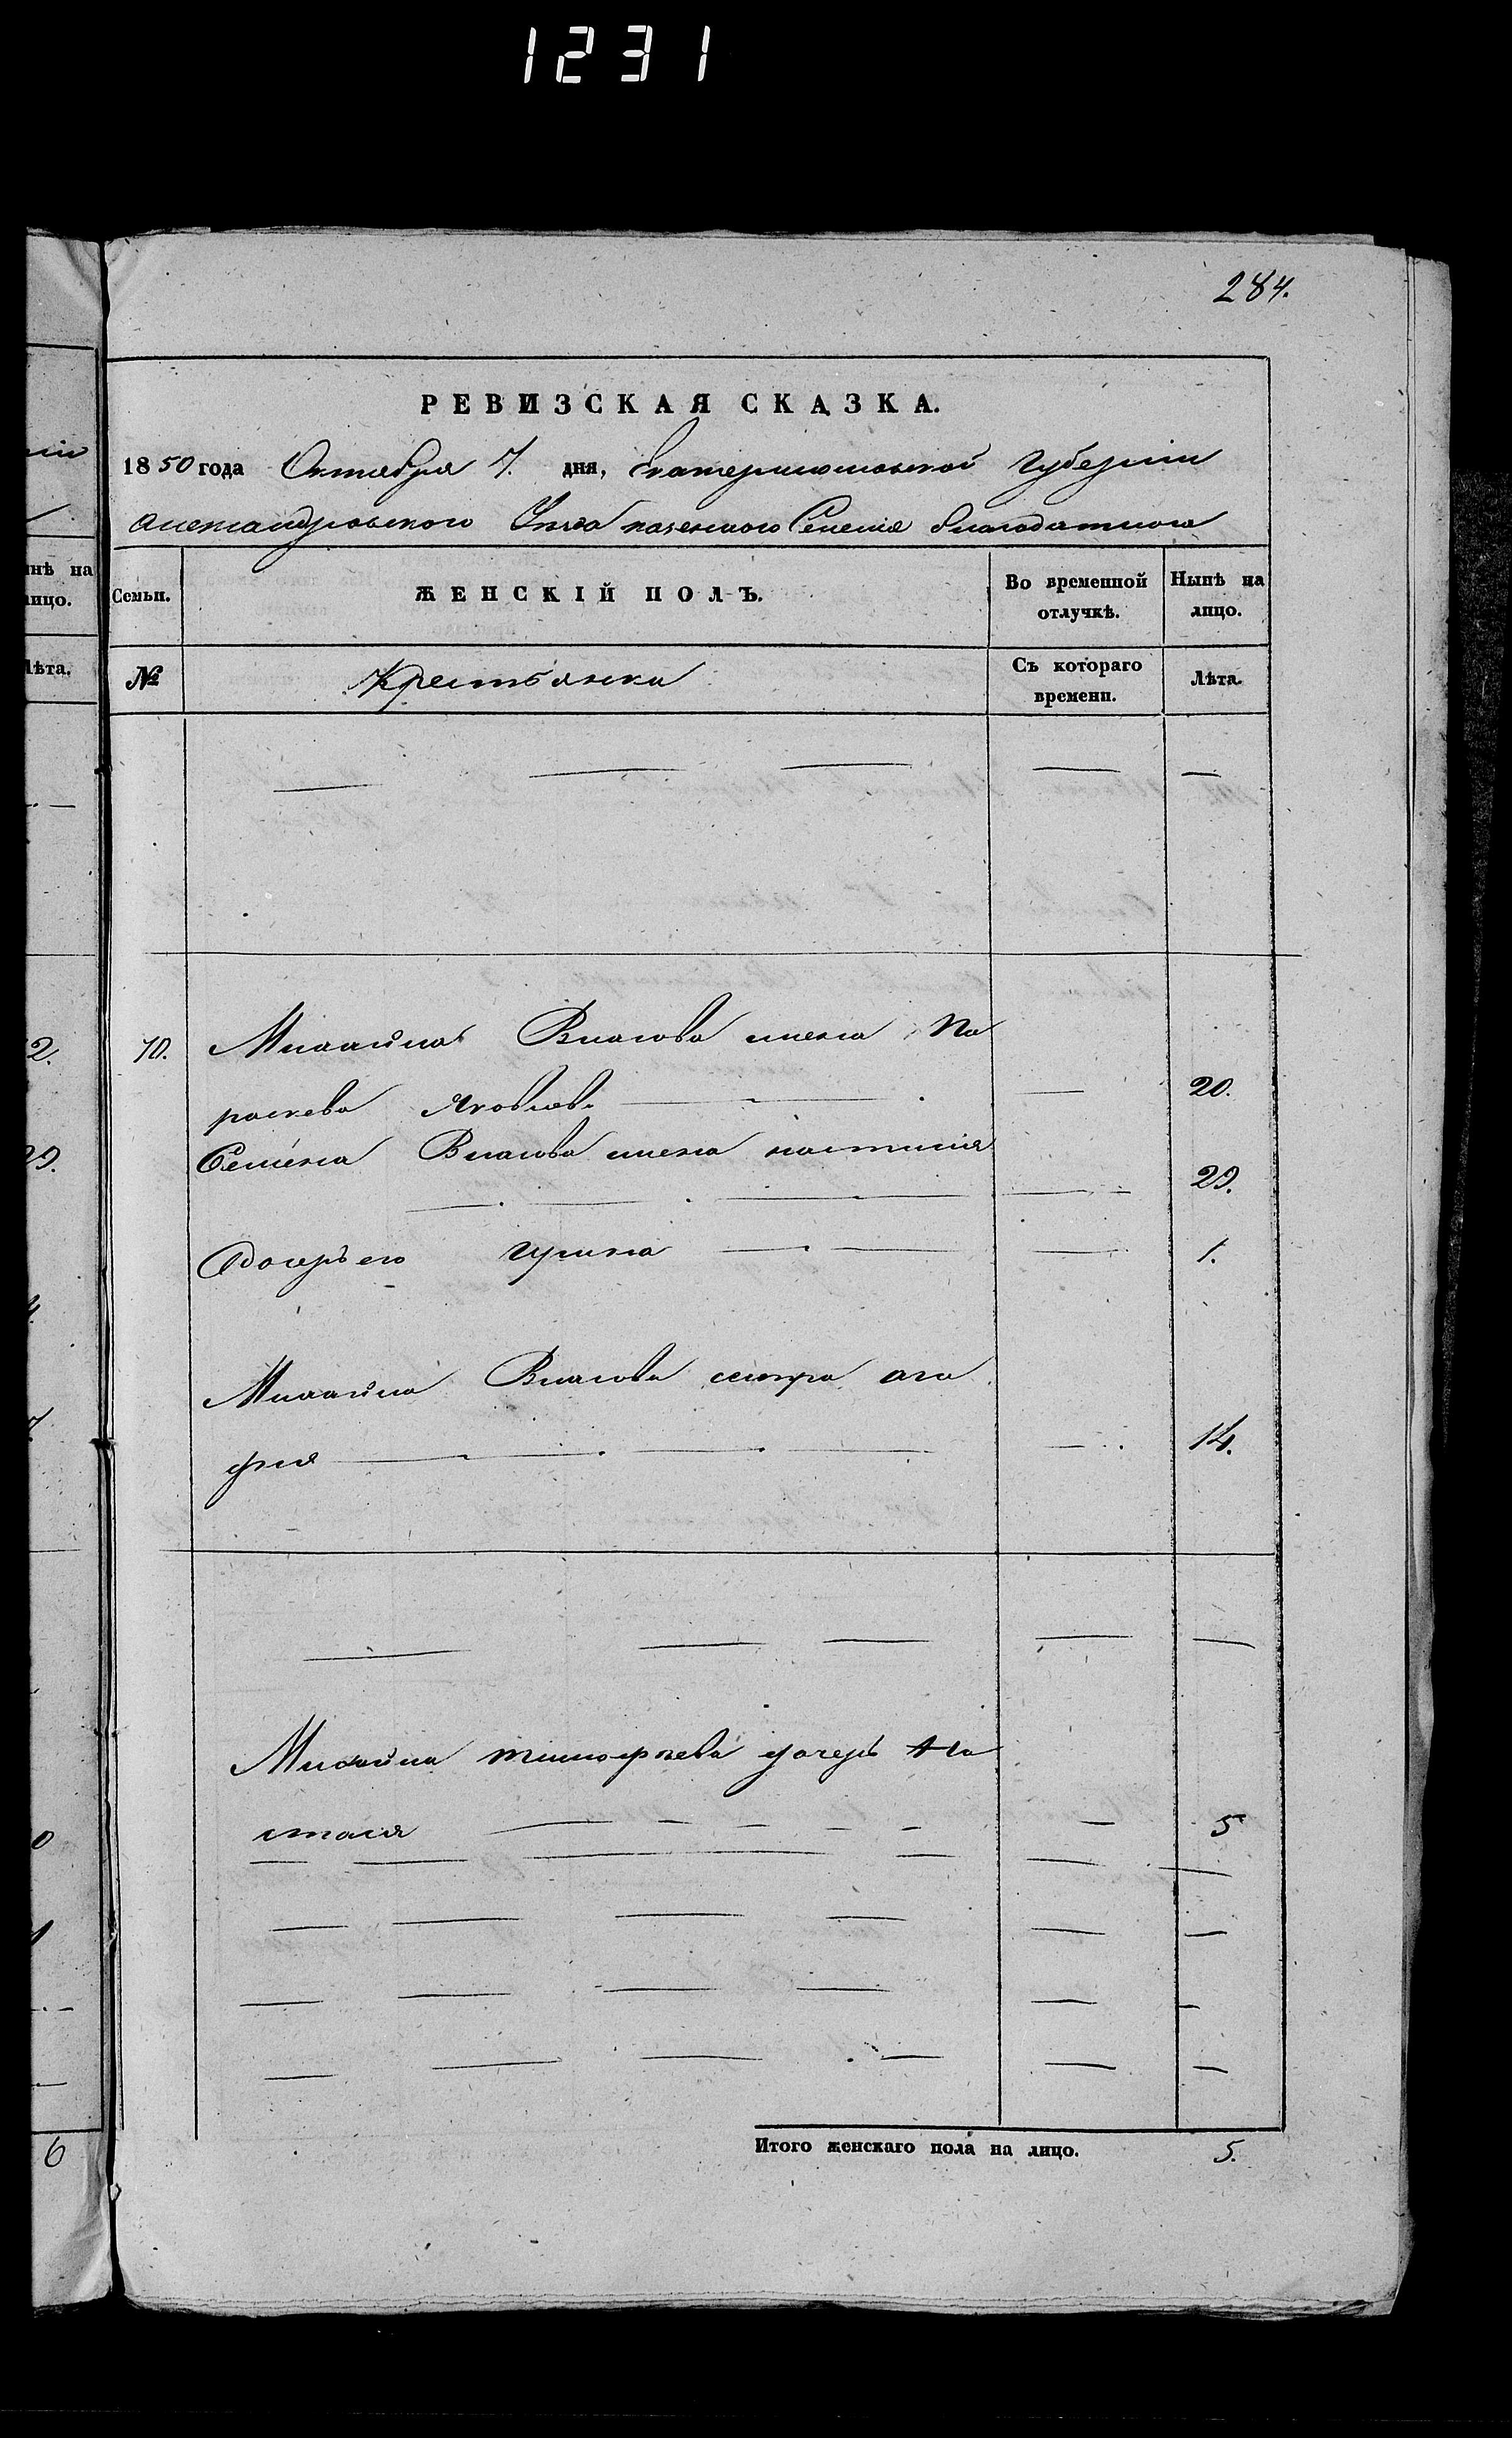 1231
284.
РЕВИЗСКАЯ СКАЗКА.
1850 года Октября 7. дня, Екатеринославской Губернии
Александровского Уезда казенного Селения благодатного
Семьи. ЖЕНСКІЙ ПОЛЪ. Во временной отлучкѣ. Нынѣ на лицо.
№ Крестьянка Съ котораго времени. Лѣта.
10. Михайла Власова жена Па
раскева Яковлев. 20.
Семена Власова жена настасия
29.
дочерь его 1.
Михайла Власова сестра ага
фия 14.
Михайла тимофеева дочерь На
стася 5
Итого женскаго пола на лицо. 5.
нѣ на
лицо.
Лѣта.
2.
29.
6